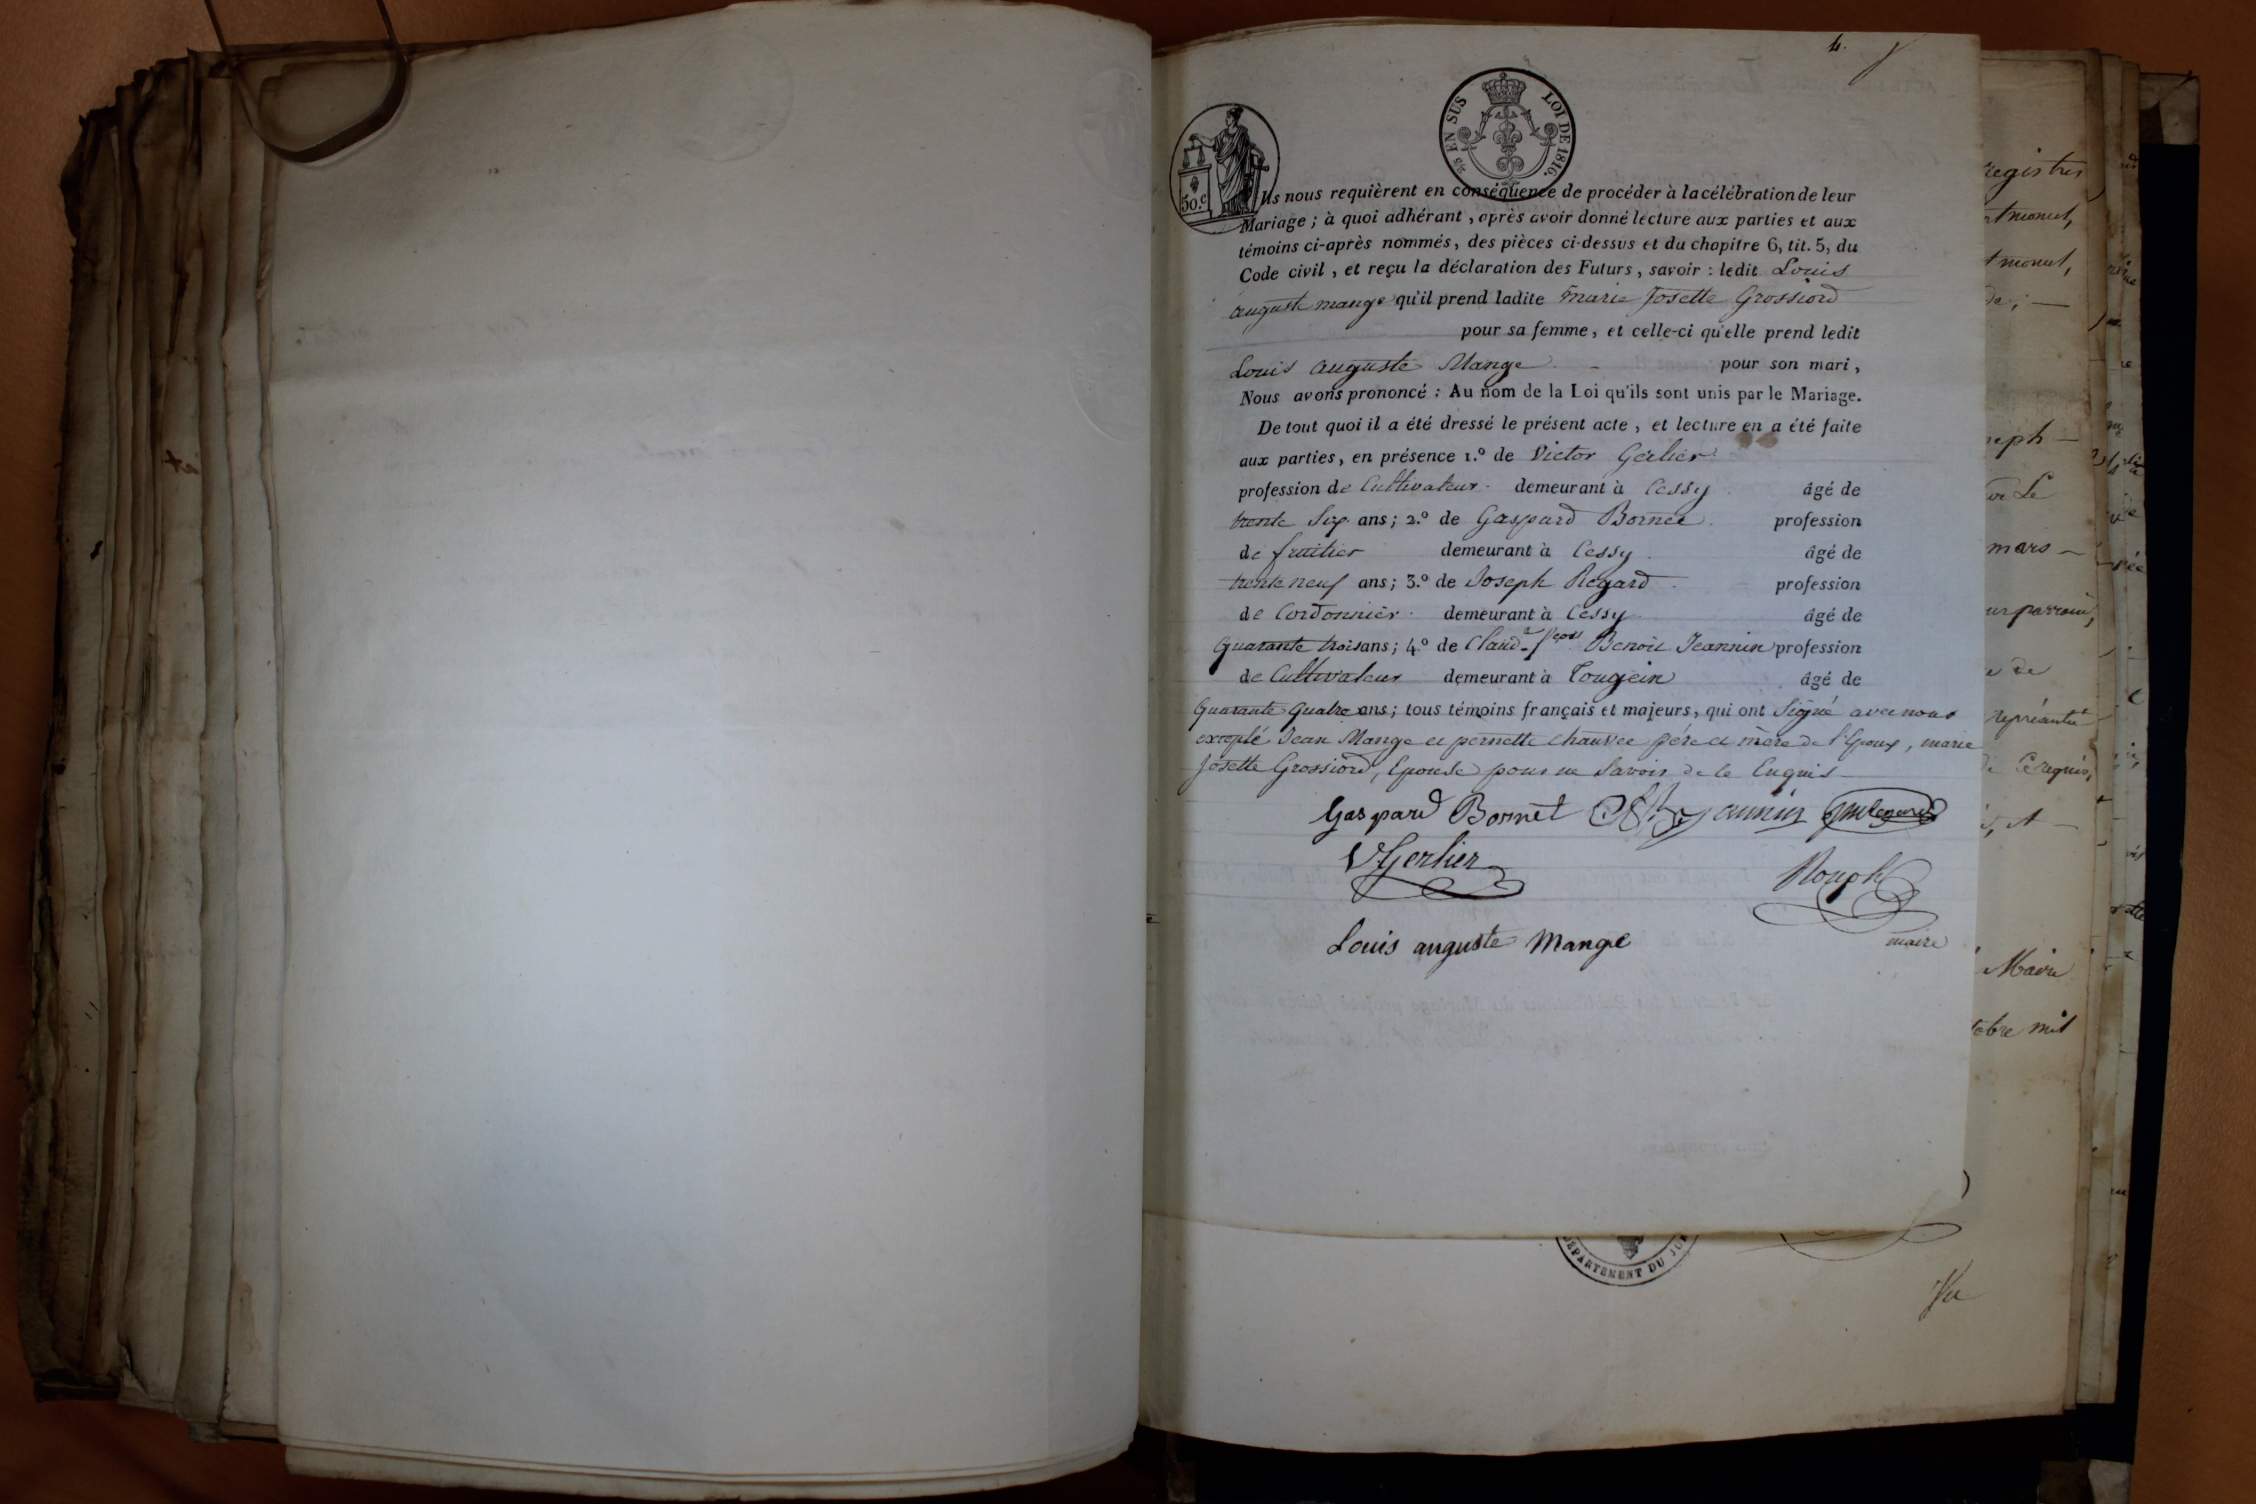 4.
¼ EN SUS LOI DE 1816.
50.c
Ils nous requièrent en conséquence de procéder à la célébration de leur
Mariage ; à quoi adhérant , après avoir donné lecture aux parties et aux
témoins ci-après nommés, des pièces ci-dessus et du chapitre 6, tit. 5, du
Code civil , et reçu la déclaration des Futurs , savoir : ledit Louis
auguste mange qu'il prend ladite marie Josette Grossiord
pour sa femme, et celle-ci qu'elle prend ledit
Louis auguste Mange pour son mari ,
Nous avons prononcé : Au nom de la Loi qu'ils sont unis par le Mariage.
De tout quoi il a été dressé le présent acte , et lecture en a été faite
aux parties, en présence 1.º de Victor Gerlier
profession de Cultivateur demeurant à Cessy âgé de
trente Six ans; 2.º de Gaspard Bornet profession
de fruitier demeurant à Cessy âgé de
trente neuf ans; 3.º de Joseph Regard profession
de Cordonnier demeurant à Cessy âgé de
Quarante trois ans; 4.º de Claude fçois Benoit Jeannin profession
de Cultivateur demeurant à Tougein âgé de
Quarante Quatre ans; tous témoins français et majeurs, qui ont Signé avec nous
excepté Jean Mange et pernette chauvet père et mère de l'Epoux, marie
Josette Grossiord, Epouse pour ne Savoir de ce Enquis
Gaspard Bornet Jeannin
VGerlier
Rouph
Louis auguste Mange
maire
registres
de ; —
mars —
Maire
tobre mil
DÉPARTEMENT DU JURA
Vu